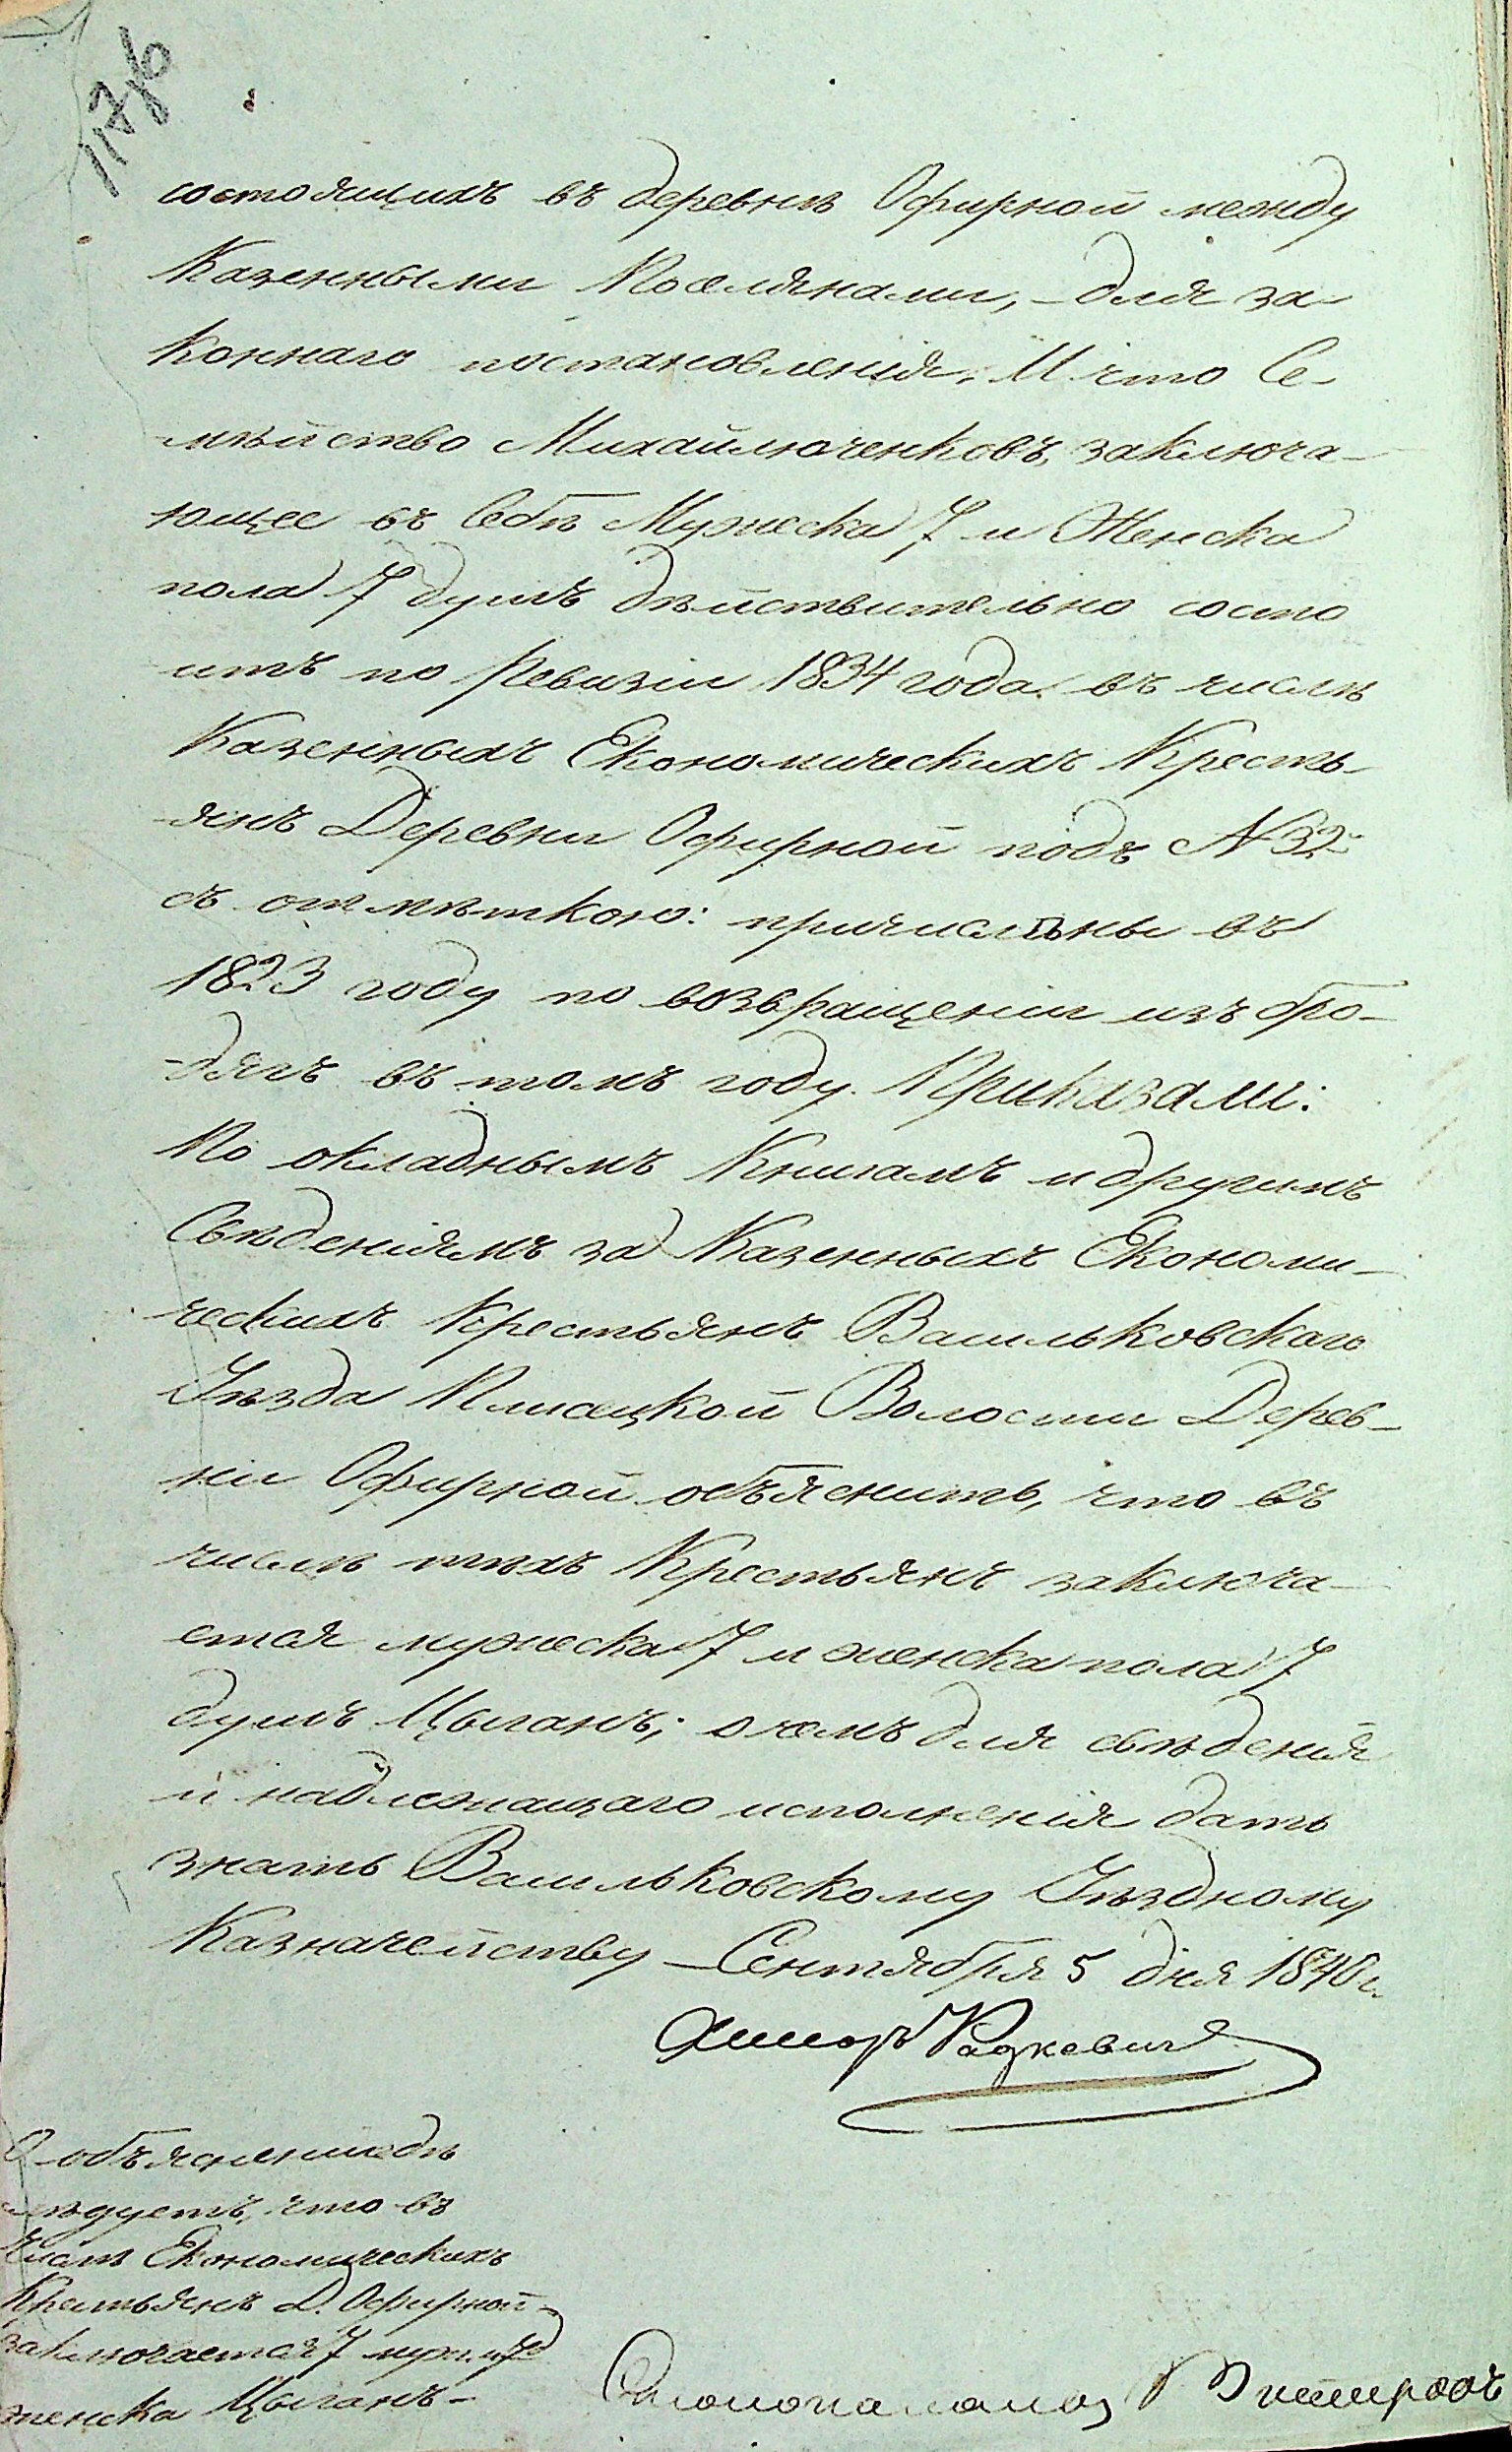 117 об
состоящихъ въ деревнѣ Офирной между
Казенными Поселянами, – для за-
коннаго постановленія. И что Се-
мѣйство Михайлюченковъ, заключа-
ющее въ Себѣ Мужеска 7 и Женска
пола 7 душъ дѣйствительно состо
итъ по Ревизіи 1834 года въ числѣ
Казенныхъ Економическихъ Кресть-
янъ Деревни Офирной подъ N 32
съ отмѣткою: причислены въ
1823 году по возвращеніи изъ бро-
-дягъ въ томъ году. Приказали:
По окладнымъ Книгамъ и другимъ
Свѣденіямъ за Казенныхъ Економи-
ческихъ Крестьянъ Васильковскаго
Уѣзда Плисецкой Волости Дерев-
ни Офирной объяснить, что въ
числѣ тѣхъ Крестьянъ заключа-
ется мужеска 7 и женска пола 7
душъ Цыганъ; о чемъ для свѣденія
и надлежащаго исполненія дать
знать Васильковскому Уѣздному
Казначейству – Сентября 5 дня 1840 г.
Радкевичъ
О объясненіи гдѣ
слѣдуетъ, что въ
числѣ Економическихъ
Крестьянъ Д. Офирной
заключается 7 муж. и 7
женска Цыганъ –